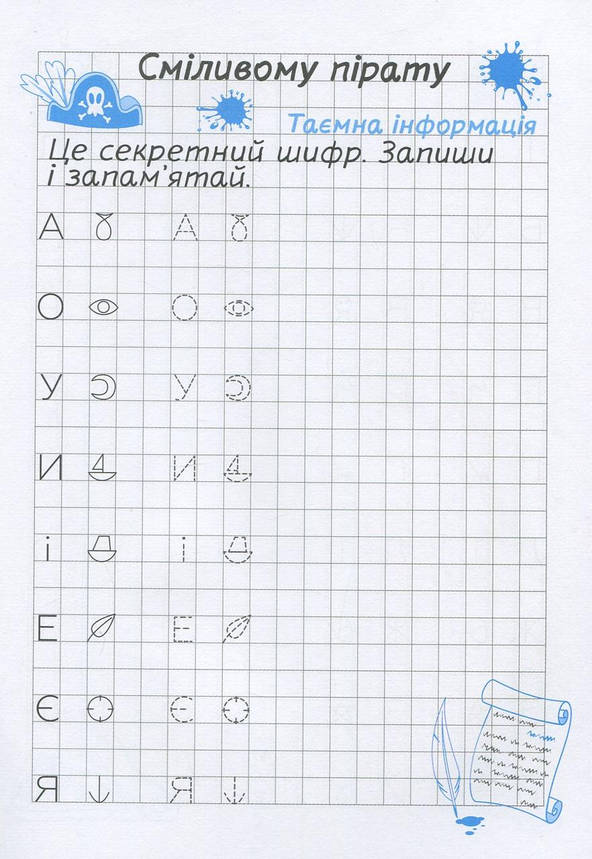 Сміливому пірату
Таємна інформація
Це секретний шифр. Запиши
і запам'ятай.
А А
О О
У У
И И
і і
Е Е
Є Є
Я Я